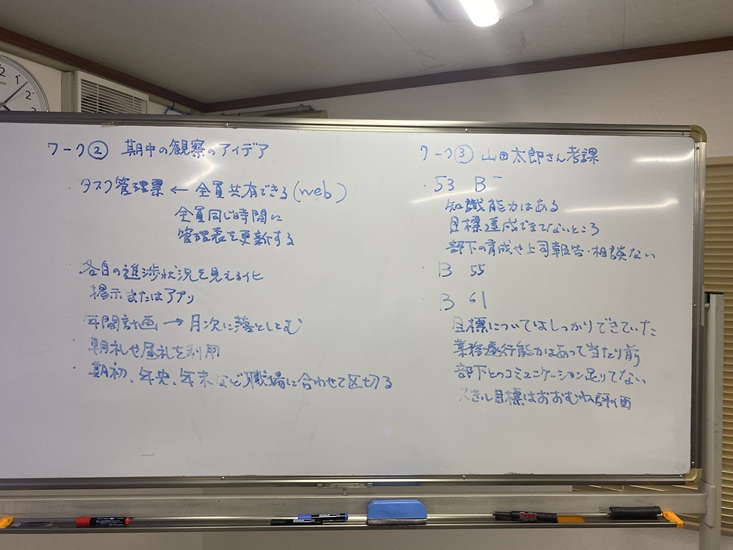 ワーク② 期中の観察のアイデア
・タスク管理票 ← 全員共有できる(web)
全員同じ時間に
管理表を更新する
各自の進捗状況を見える化
掲示またはアプリ
年間計画 → 月次に落としこむ
・朝礼や昼礼を利用
・期初、年央、年末など職場に合わせて区切る
ワーク③ 山田太郎さん考課
・53 B⁻
知識能力はある
目標達成できてないところ
部下の育成や上司報告・相談ない
・B 55
・B 61
目標についてはしっかりできていた
業務遂行能力はあって当たり前
部下とのコミュニケーション足りてない
スキル目標はおおむね評価
12
1
2